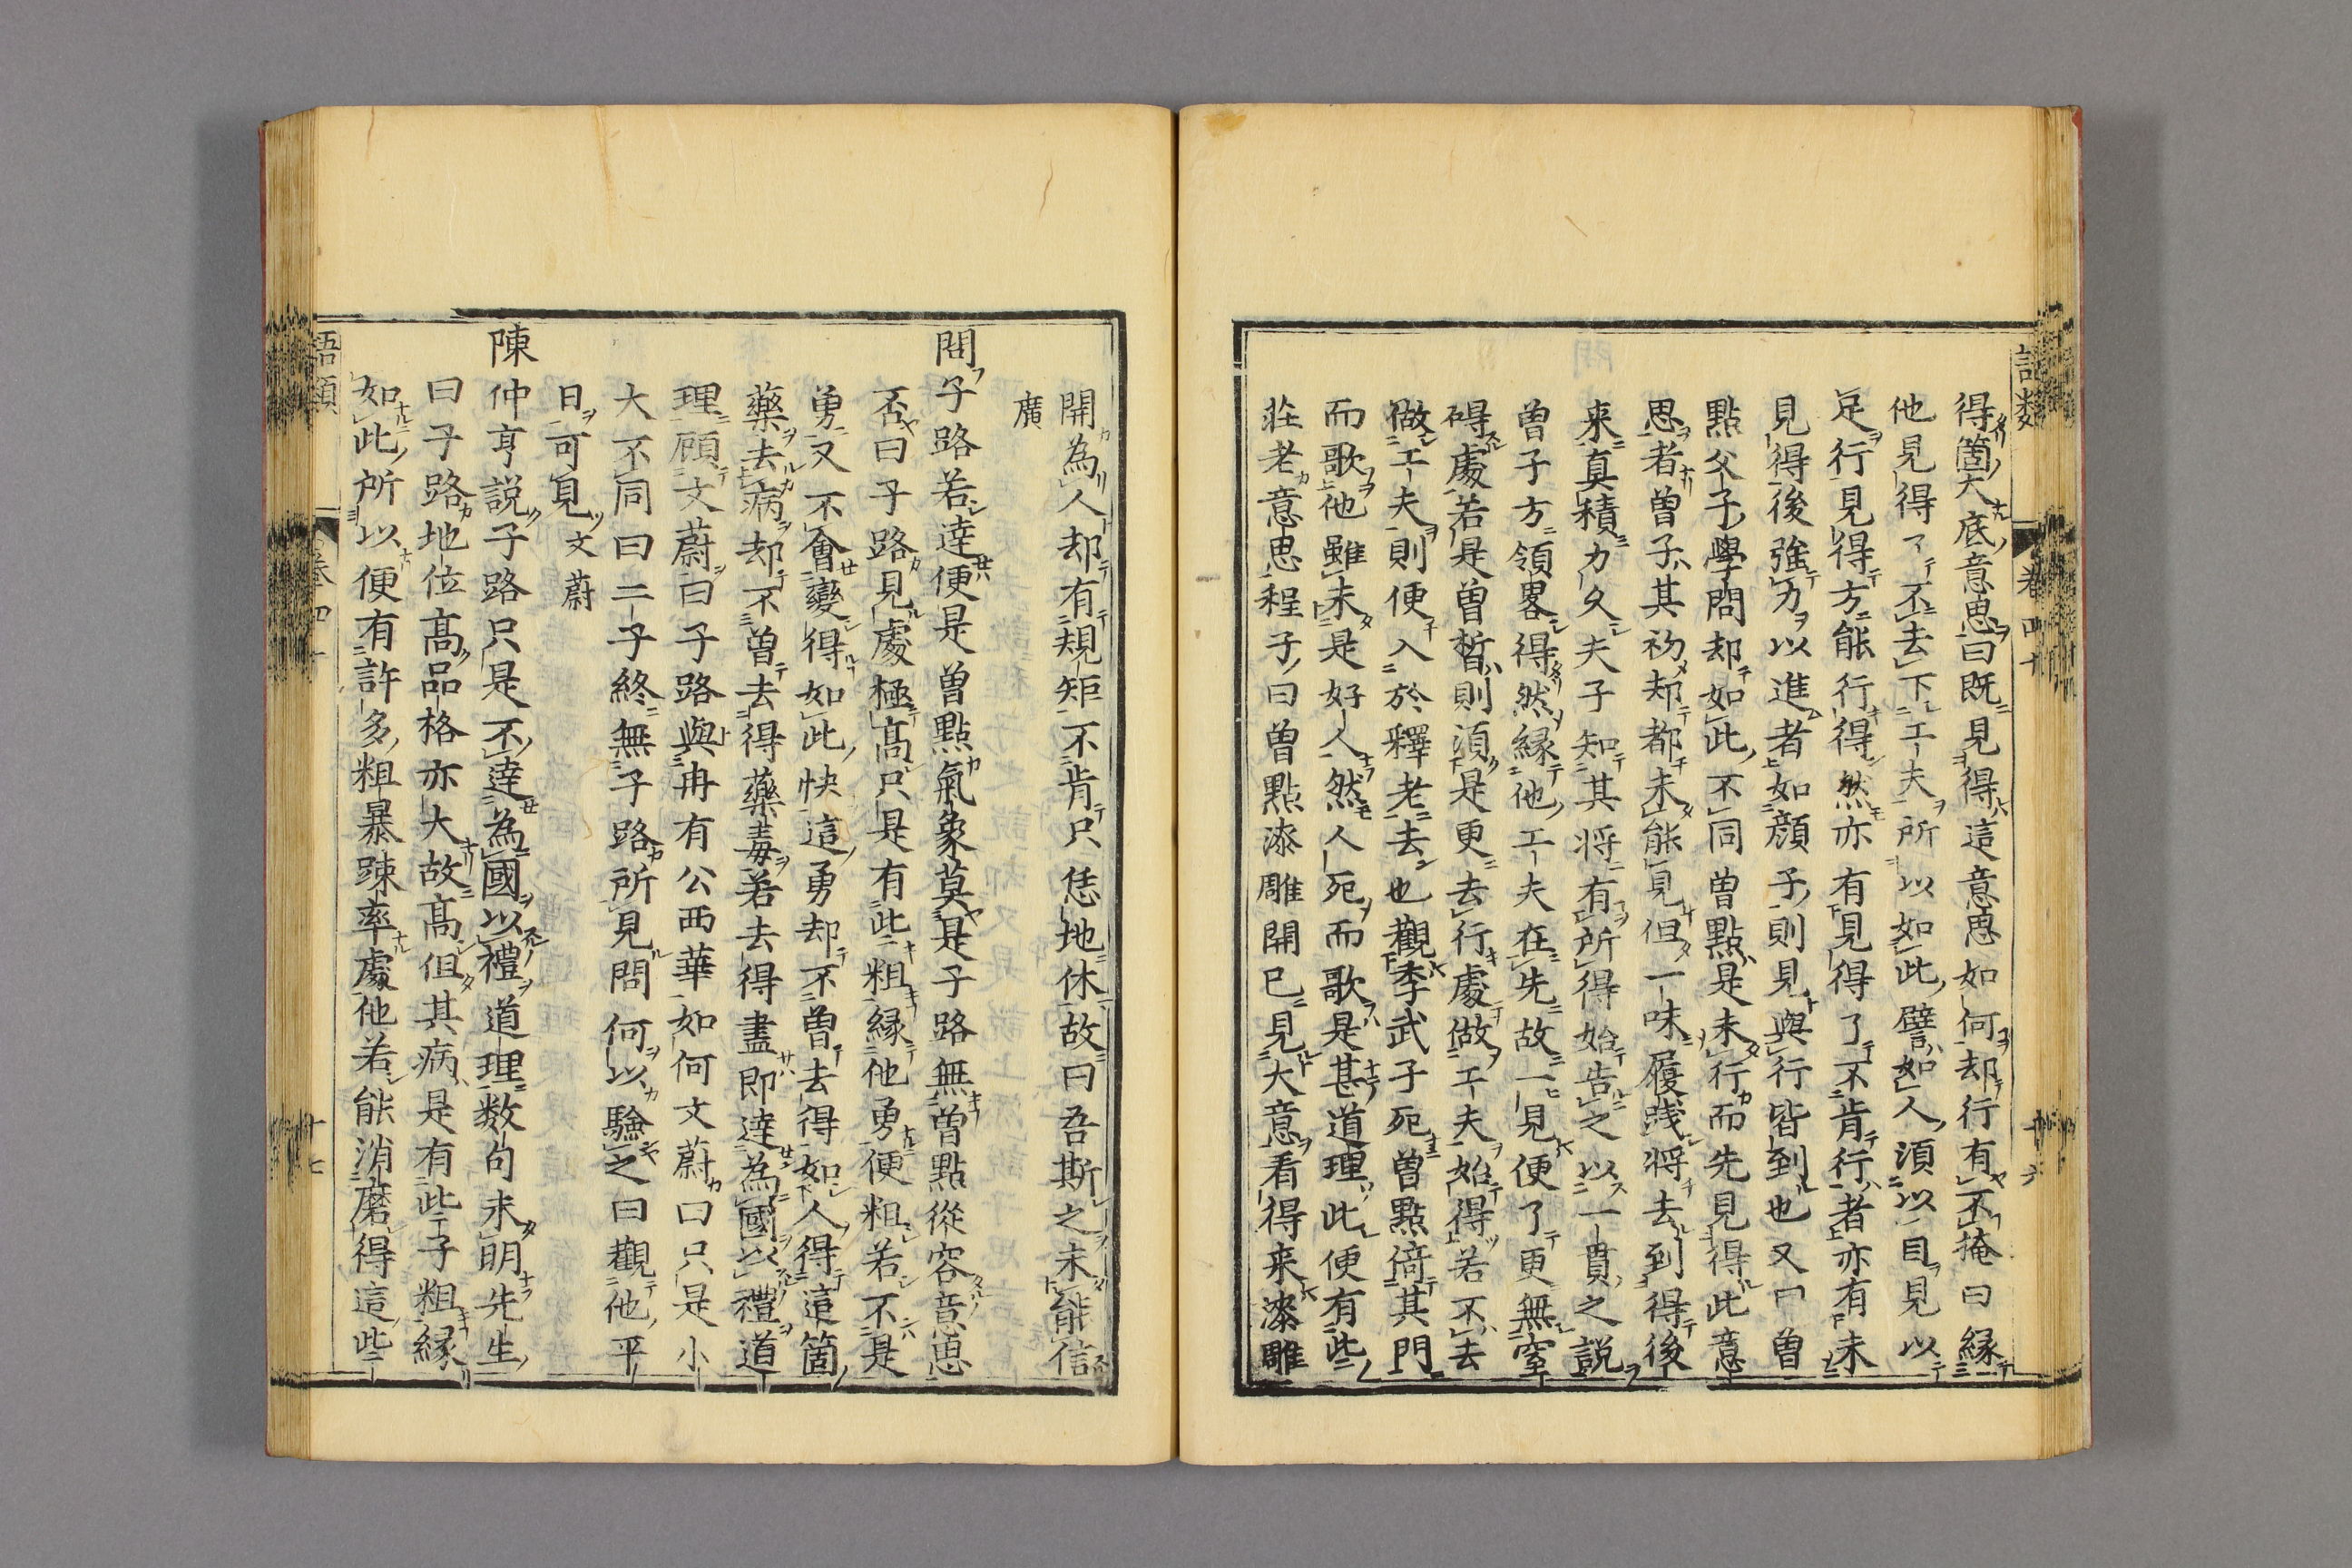 語類
卷四十
得箇大底意思曰既見得這意思如何却行有不掩曰縁
他見得了不去下工夫所以如此譬如人須以目見以
足行見得方能行得然亦有見得了不肯行者亦有未
見得後強力以進者如顔子則見與行皆到也又曰曽
點父子學問却如此不同曽點是未行而先見得此意
思者曽子其初却都未能見但一味履践将去到得後
来真積力久夫子知其将有所得始告之以一貫之説
曽子方領畧得然縁他工夫在先故一見便了更無窒
碍處若是曽晳則須是更去行處做工夫始得若不去
做工夫則便入於釋老去也觀季武子死曽點倚其門
而歌他雖未是好人然人死而歌是甚道理此便有些
莊老意思程子曰曽點漆雕開已見大意看得来漆雕
開為人却有規矩不肯只恁地休故曰吾斯之未能信
廣
問子路若達便是曽點氣象莫是子路無曽點從容意思
否曰子路見處極高只是有些粗縁他勇便粗若不是
勇又不會變得如此快這勇却不曽去得如人得這箇
藥去病却不曽去得藥毒若去得盡即達為國以禮道
理顧文蔚曰子路與冉有公西華如何文蔚曰只是小
大不同曰二子終無子路所見問何以驗之曰觀他平
日可見文蔚
陳仲亨説子路只是不達為國以禮道理数句未明先生
曰子路地位高品格亦大故高但其病是有些子粗縁
如此所以便有許多粗暴踈率處他若能消磨得這些
語類
卷四十
十七